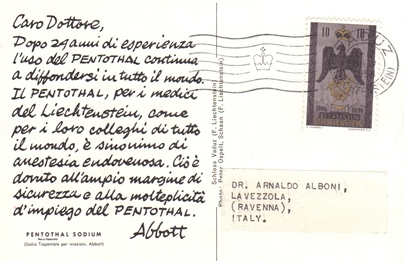 Caro Dottore,
Dopo 24 anni di esperienza
l'uso del PENTOTHAL continua
a diffondersi in tutto il mondo.
Il PENTOTHAL, per i medici
del Liechtenstein, come
per i loro colleghi di tutto
il mondo, è sinonimo di
anestesia endovenosa. Ciò è
dovuto all'ampio margine di
sicurezza e alla molteplicità
d'impiego del PENTOTHAL.
Abbott
PENTOTHAL SODIUM
(Sodio Tiopentale per iniezioni, Abbott)
Schloss Vaduz (F. Liechtenstein)
Photo Peter Ospelt, Schaan (F. Liechtenstein)
10 10
1806 1956
DR. ARNALDO ALBONI,
LAVEZZOLA,
(RAVENNA),
ITALY.